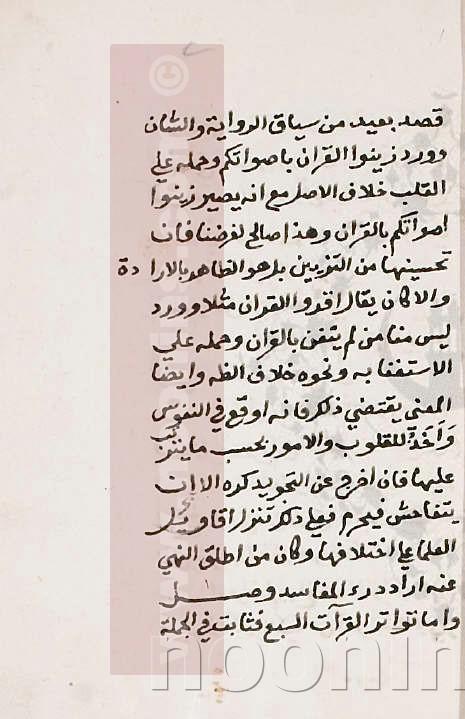 قصد بعيد من سياق الرواية والشان
وورد زينوا القران باصواتكم وحمله علي
القلب خلاف الاصل مع انه يصير زينوا
اصواتكم بالقران وهذا صالح لغرضنا فان
تحسينها من التزيين بل هو الظاهر بالارادة
والا كان يقال اقروا القران مثلا وورد
ليس منا من لم يتغن بالقران وحمله علي
الاستغنا به ونحوه خلاف الظه وايضا
المعني يقتضي ذلك فانه اوقع في النفوس
وآخذ للقلوب والامور بحسب ما يترتب
عليها فان اخرج عن التجويد كره الا ان
يتفاحش فيحرم فعلي ذلك تتنزل اقاويل
العلما علي اختلافها وكان من اطلق النهي
عنه اراد درء المفاسد وصل
واما تواتر القرآت السبع فثابت في الجملة
noonin